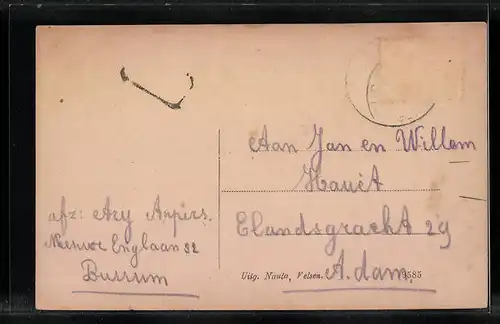 Aan Jan en Willem
Hauet
Elandsgracht 29
A.dam.
afz: Ary Anpirs.
Nieuwe Englaan 32
Bussum
Uitg. Nauta, Velsen. 9585